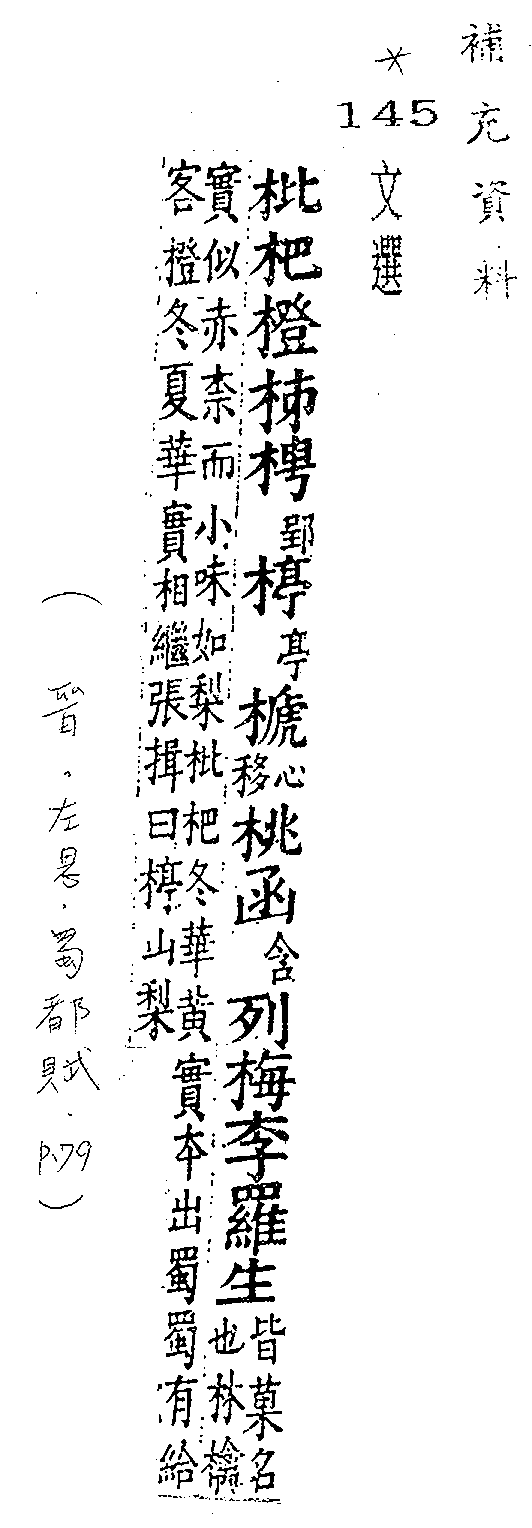 補充資料
* 145 文選
枇杷橙柹梬郢楟亭榹心移桃函含列梅李羅生皆菓名也林檎
實似赤柰而小味如梨枇杷冬華黃實本出蜀蜀有給
客橙冬夏華實相繼張揖曰楟山梨
(晉。左思.蜀都賦.p.79)